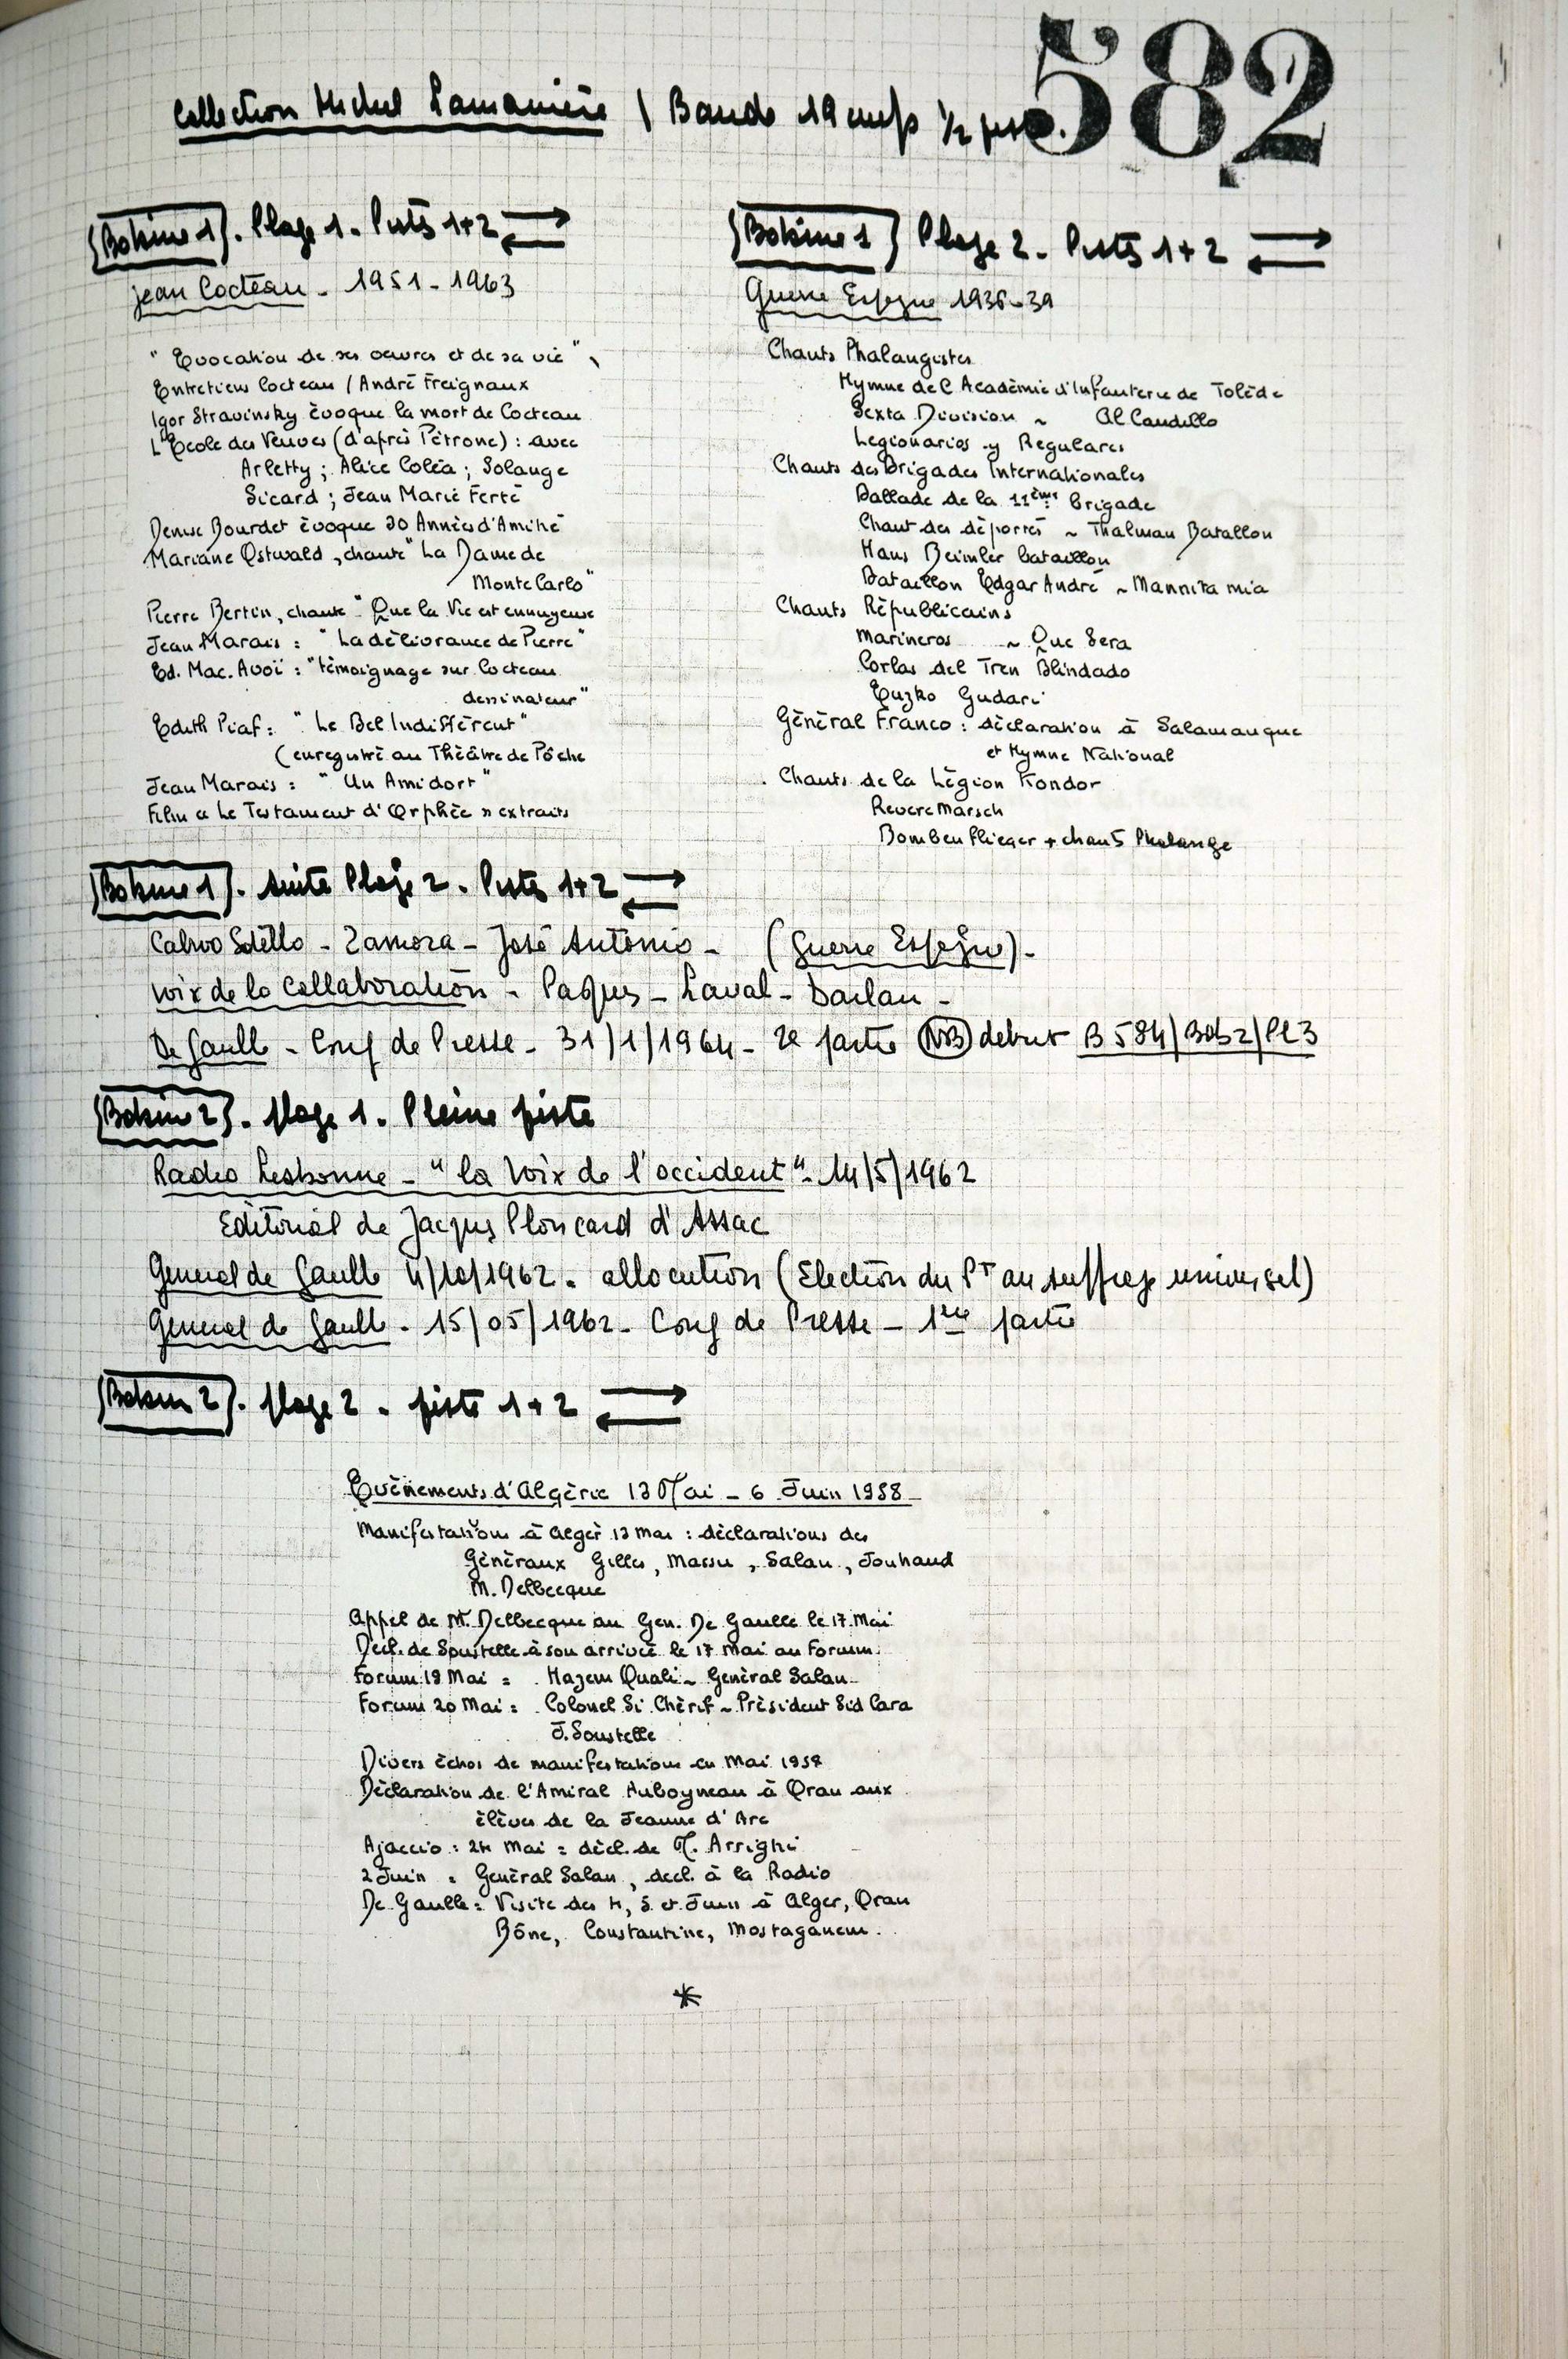 582
Collection Michel Lamanière / Bande 19 cm/s 1/2 piste.
Bobine 1. Plage 1. Pistes 1+2
Jean Cocteau - 1951 - 1963
"Evocation de ses oeuvres et de sa vie"
Entretiens Cocteau / André Freignaux
Igor Stravinsky évoque la mort de Cocteau
L'Ecole des Veuves (d'après Pétrone) : avec
Arletty ; Alice Coléa ; Solange
Sicard ; Jean Marie Ferté
Denise Bourdet évoque 30 Années d'Amitié
Mariane Ostwald, chante "La Dame de
Monte Carlo"
Pierre Bertin, chante "Que la Vie est ennuyeuse
Jean Marais : "La délivrance de Pierre"
Ed. Mac. Avoï : "témoignage sur Cocteau
dessinateur"
Edith Piaf : "Le Bel Indifférent"
(enregistré au Théâtre de Pôche
Jean Marais : "Un Ami dort"
Film « Le Testament d'Orphée » extraits
Bobine 1 Plage 2 - Pistes 1+2
Guerre Espagne 1936-39
Chants Phalangistes
Hymne de l'Académie d'Infanterie de Tolède
Sexta Division ~ Al Caudillo
Legionarios y Regulares
Chants des Brigades Internationales
Ballade de la 11ème brigade
Chant des déportés ~ Thalman Batallon
Hans Beimler bataillon
Bataillon Edgar André ~ Mannita mia
Chants Républicains
Marineros ~ Que Sera
Corlas del Tren Blindado
Euzko Gudari
Général Franco : déclaration à Salamanque
et Hymne National
Chants de la Légion Kondor
Revere Marsch
Bombenflieger + chants Phalange
Bobine 1. suite Plage 2. Pistes 1+2
Calvo Sotello - Zamora - José Antonio - (Guerre Espagne).
Voix de la Collaboration - Paquis - Laval - Darlan -
De Gaulle - Conf de Presse - 31/1/1964 - 2e partie (NB) debut B 584/Bob 2/Pl 3
Bobine 2. plage 1. Pleine piste
Radio Lisbonne - "la voix de l'occident" - 14/5/1962
Editorial de Jacques Ploncard d'Assac
General de Gaulle 4/10/1962. allocution (Election du Pt au suffrage universel)
General de Gaulle - 15/05/1962 - Conf de Presse - 1ere partie
Bobine 2. plage 2. piste 1+2
Evènements d'Algérie 13 Mai - 6 Juin 1958
Manifestations à Alger 13 mai : déclarations des
Généraux Gilles, Massu, Salan, Jouhaud
M. Delbecque
Appel de M. Delbecque au Gen. De Gaulle le 17 Mai
Decl. de Soustelle à son arrivée le 17 Mai au Forum
Forum 19 Mai : Hazem Ouali ~ Général Salan
Forum 20 Mai : Colonel Si Chérif ~ Président Sid Cara
J. Soustelle
Divers échos de manifestations en Mai 1958
Déclaration de l'Amiral Auboyneau à Oran aux
élèves de la Jeanne d'Arc
Ajaccio : 24 Mai : décl. de M. Arrighi
2 Juin : Général Salan, decl. à la Radio
De Gaulle : Visite des 4, 5 et Juin à Alger, Oran
Bône, Constantine, Mostaganem.
*